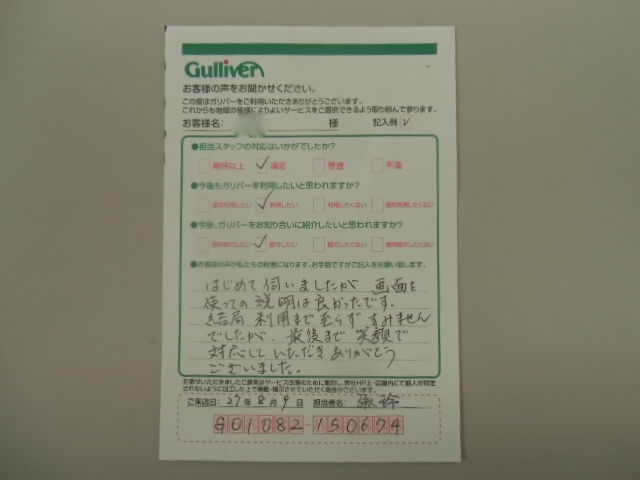 Gulliver
お客様の声をお聞かせください。
この度はガリバーをご利用いただきありがとうございます。
これからも地域の皆様によりよいサービスをご提供できるよう取り組んで参ります。
お客様名: 様 記入例 レ
●担当スタッフの対応はいかがでしたか?
期待以上 満足 普通 不満
●今後もガリバーを利用したいと思われますか?
是非利用したい 利用したい 利用したくない 絶対利用したくない
●今後、ガリバーをお知り合いに紹介したいと思われますか?
是非紹介したい 紹介したい 紹介したくない 絶対紹介したくない
●お客様の声が私たちの財産になります。お手数ですがご記入をお願い致します。
はじめて伺いましたが 画面を
使っての説明は良かったです。
結局 利用まで至らずすみません
でしたが、最後まで笑顔で
対応していただきありがとう
ございました。
お寄せいただきましたご意見はサービス改善のために集計し、弊社HP上・店舗内にて個人が特定
されないように加工した上で掲載・掲示させていただく場合がございます。
ご来店日: 27年8月9日 担当者名:
G01082-150674